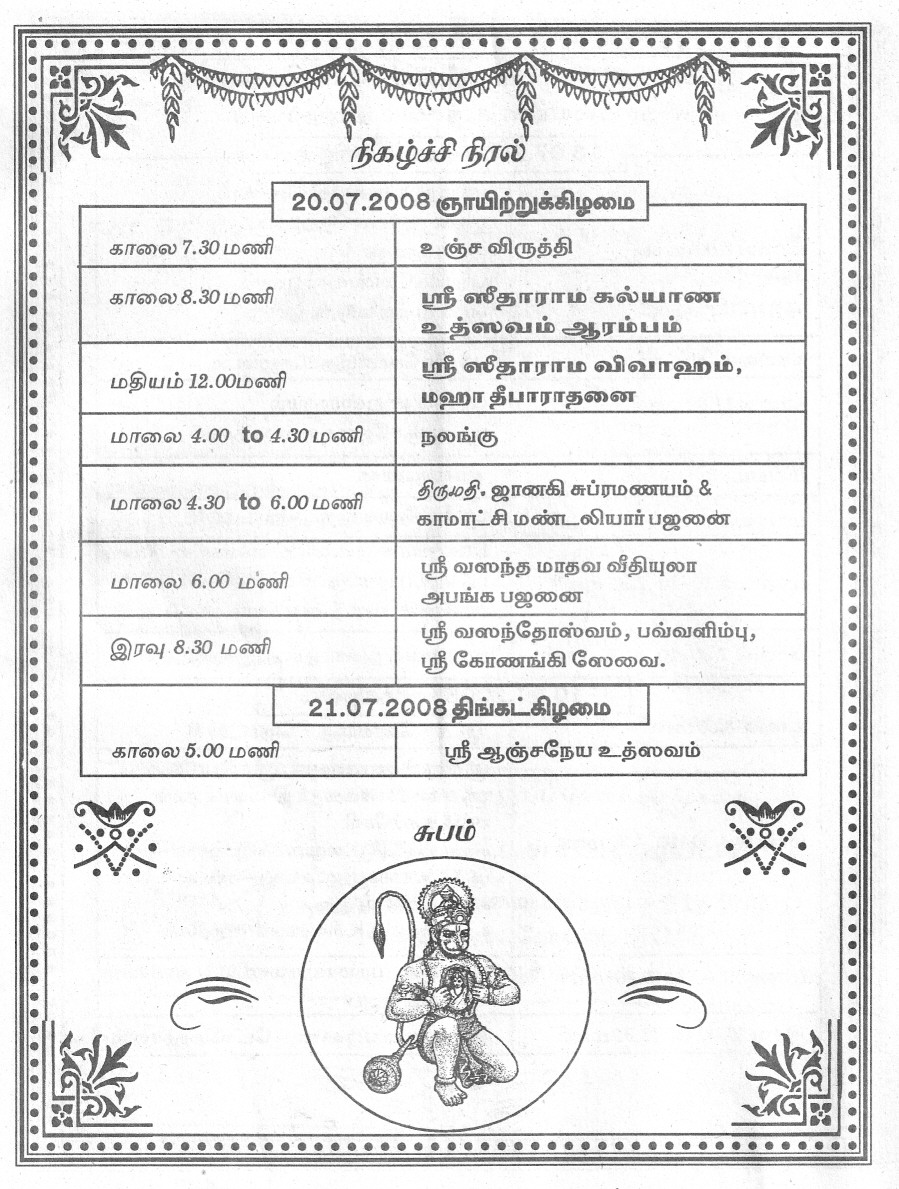 நிகழ்ச்சி நிரல்
20.07.2008 ஞாயிற்றுக்கிழமை
காலை 7.30 மணி உஞ்ச விருத்தி
காலை 8.30 மணி ஸ்ரீ ஸீதாராம கல்யாண
உத்ஸவம் ஆரம்பம்
மதியம் 12.00மணி ஸ்ரீ ஸீதாராம விவாஹம்,
மஹா தீபாராதனை
மாலை 4.00 to 4.30 மணி நலங்கு
மாலை 4.30 to 6.00 மணி திருமதி. ஜானகி சுப்ரமணயம் &
காமாட்சி மண்டலியார் பஜனை
மாலை 6.00 மணி ஸ்ரீ வஸந்த மாதவ வீதியுலா
அபங்க பஜனை
இரவு 8.30 மணி ஸ்ரீ வஸந்தோஸ்வம், பவ்வளிம்பு,
ஸ்ரீ கோணங்கி ஸேவை.
21.07.2008 திங்கட்கிழமை
காலை 5.00 மணி ஸ்ரீ ஆஞ்சநேய உத்ஸவம்
சுபம்